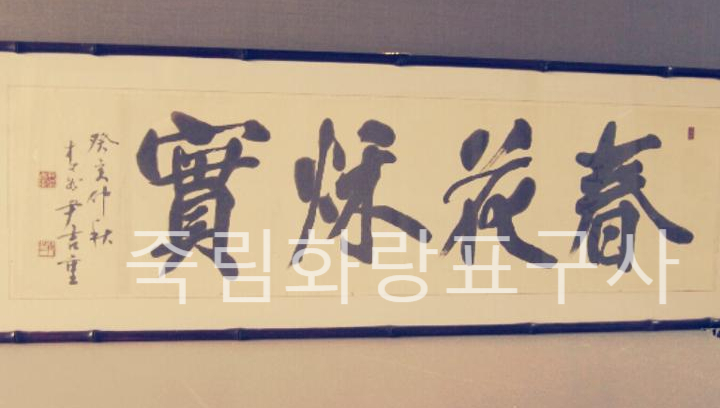 春花秌實
癸亥仲秋
青谷尹吉重
죽림화랑표구사